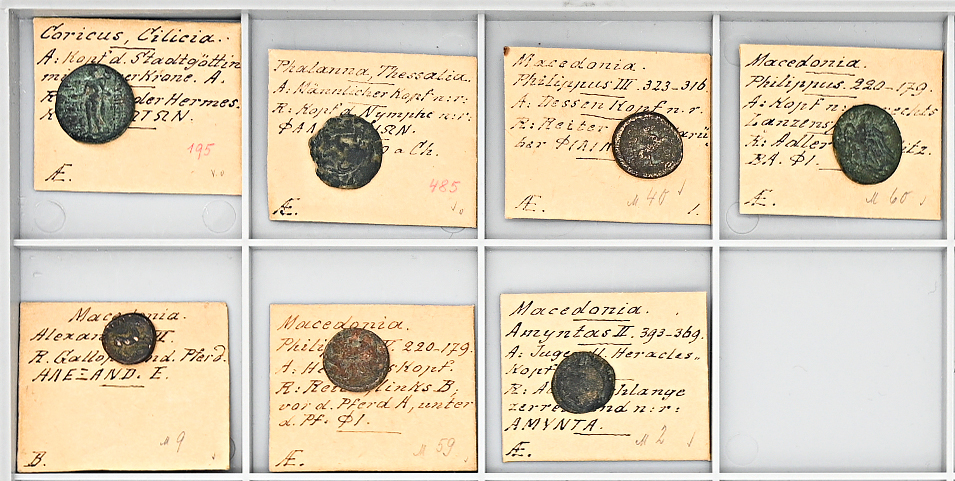 Coricus, Cilicia.
A: Kopf d. Stadtgöttin
der Krone. A.
der Hermes.
ΩTΩN.
195
Æ.
Phalanna, Thessalia.
A: Männlicher Kopf n: r:
R: Kopf d. Nymphe n: r:
ΦΑΛ ΙΩN.
a Ch.
485
Æ.
Macedonia.
Philippus III. 323-316.
A: Dessen Kopf n. r.
R: Reiter
ber ΦΙΛΙΠ
M 40
Æ. 1.
Macedonia.
Philippus. 220-179.
A: Kopf n: rechts
Lanzens
R: Adler itz.
BA. ΦΙ.
Æ. M 60
Macedonia.
Alexan
R. Gallop nd. Pferd.
ΑΛΕΞΑΝD. E.
M 9
B.
Macedonia.
Phili V. 220-179.
A: He s Kopf.
R: Reit links B,
vor d. Pferd A, unter
d. Pf. ΦΙ.
M 59
Æ.
Macedonia.
Amyntas II. 393-369.
A: Jugendl. Heracles-
Kopf
R: A hlange
zerre nd n: r:
AMYNTA.
M 2
Æ.